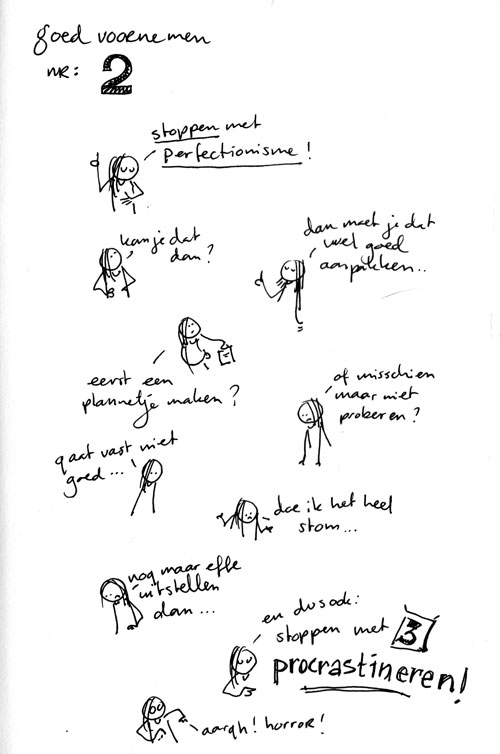 goed voornemen
NR: 2
stoppen met
perfectionisme!
kan je dat
dan?
dan moet je dat
wel goed
aanpakken..
eerst een
plannetje maken?
of misschien
maar niet
proberen?
gaat vast niet
goed...
doe ik het heel
stom...
nog maar effe
uitstellen
dan...
en dus ook:
stoppen met 3
procrastineren!
aargh! horror!